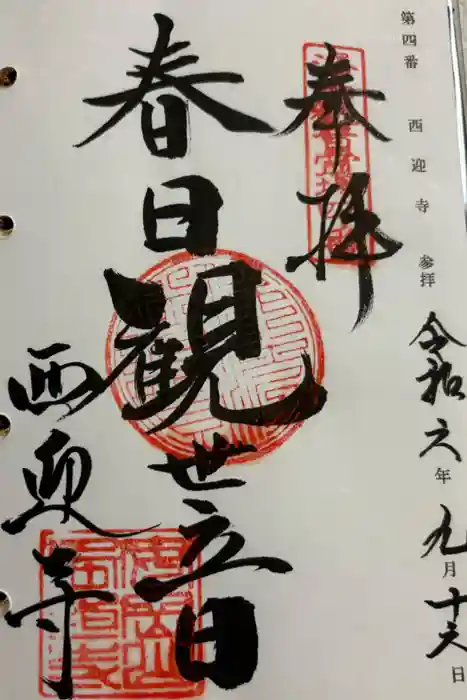 第四番 西迎寺 参拝 令和六年九月十六日
奉拝
春日観世立日
西迎寺